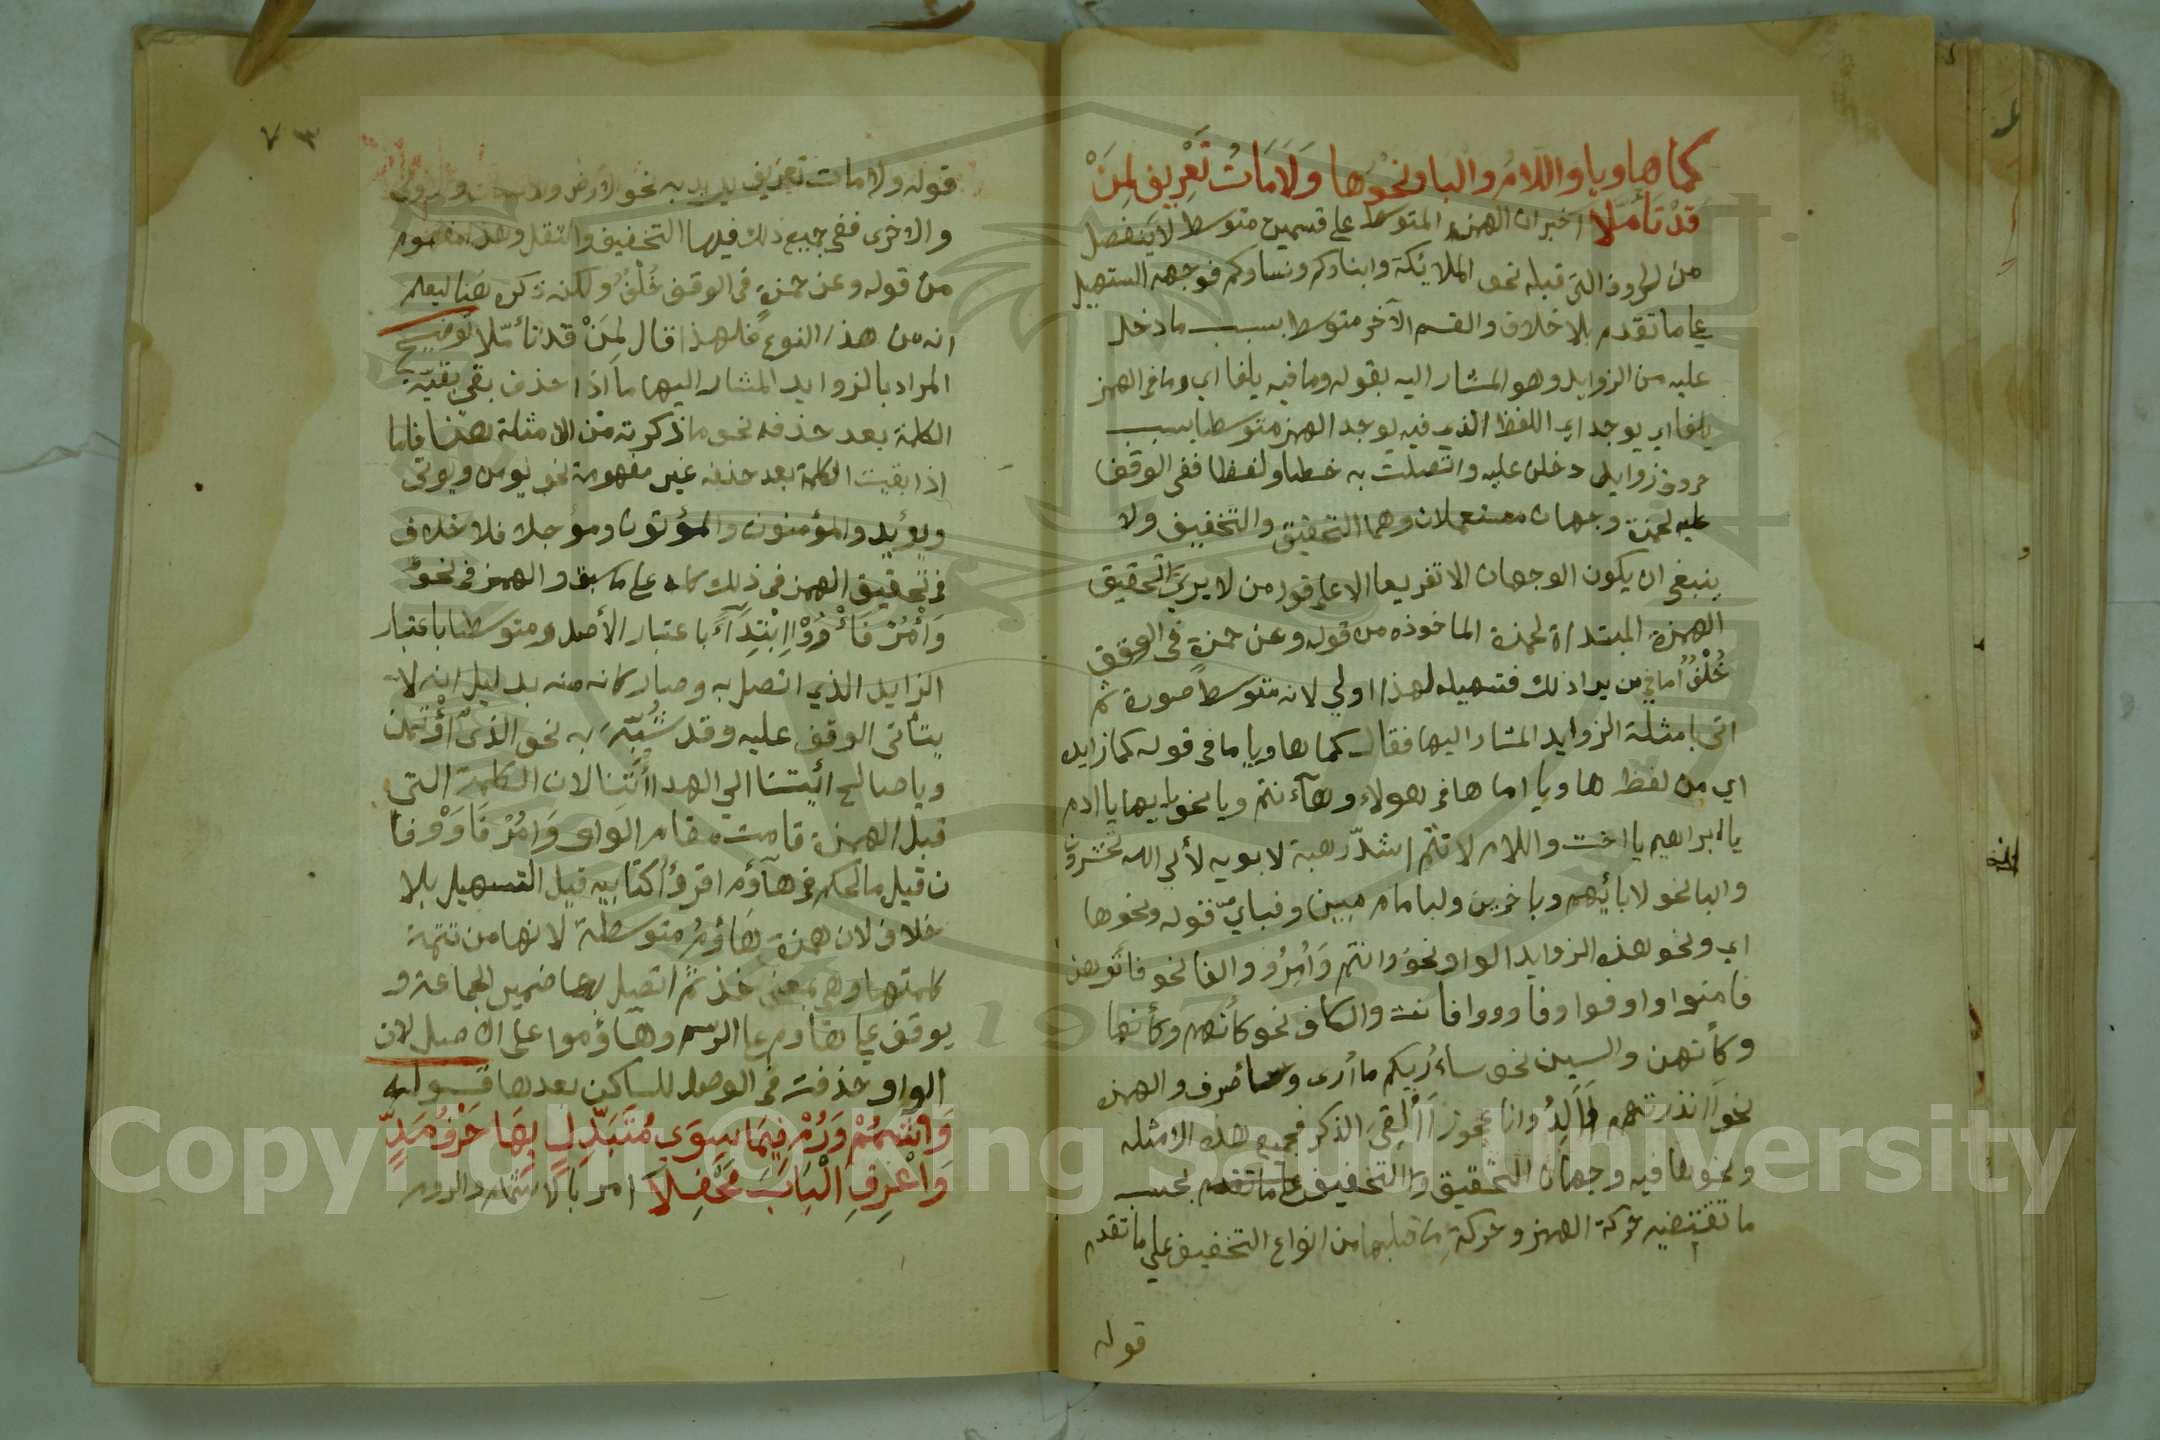 كما ها ويا واللام والبا ونحوها وَلَامَاتُ تَعْرِيفٍ لِمَنْ
قَدْ تَأَمَّلَا اخبر ان الهمزة المتوسط على قسمين متوسط لا ينفصل
من الحروف التى قبله نحو الملائكة وابناوكم ونساوكم فوجهه التسهيل
على ما تقدم بلا خلاف والقسم الآخر متوسط بسبب ما دخل
عليه من الزوايد وهو المشار اليه بقوله وما فيه يلفا اي وما في الهمز
يلفا اي يوجد اي اللفظ الذي فيه يوجد الهمز متوسطا بسبب
حروف زوايد دخلن عليه واتصلت به خطا ولفظا ففى الوقف
عليه لحمزة وجهان مستعملان وهما التحقيق والتخفيف ولا
ينبغى ان يكون الوجهان الا تفريعا الا على قول من لا يرى التحقيق
الهمزة المبتداة لحمزة الماخوذه من قوله وعن حمزةٍ فى الوقف
خُلْفٌ اما من يرا ذلك فتسهيله لهذا اولي لانه متوسط صورة ثم
اتى بامثلة الزوايد المشار اليها فقال كما ها ويا ما فى قوله كما زايده
اي من لفظ ها ويا اما ها فى هولاء وهآءنتم ويا نحو يايها ياادم
ياابراهيم يااخت واللام لانتم اشدّ رهبة لابويه لألى الله تحشرون
والبا نحو لابائهم وباخرين ولبامام مبين وفبايّ قوله ونحوها
اي ونحو هذه الزوايد الواو نحو وانتم وَأْمِرُو والفا نحو فاتوهن
فامنوا واوفوا وفاووا فانت والكاف نحو كأنهم وكأنها
وكأنهن والسين نحو ساءُريكم ماأرى وسأصرف والهمز
نحو أَانذرتهم أَأَلِدُ وانا عجوز أَأُلْقِىَ الذكر فجميع هذه الامثله
ونحوها فيه وجهان التحقيق والتخفيف على ما تقدم بحسب
ما تقتضيه حركة الهمز وحركة ما قبلها من انواع التخفيف على ما تقدم
قوله
٧٣
قوله ولامات تعريف يريد به نحو الارض
والاخرى ففى جميع ذلك فيها التخفيف والنقل وهذا مفهوم
من قوله وعن حمزةٍ فى الوقف خُلْفٌ ولكنه ذكره هنا ليعلم
انه من هذا النوع فلهذا قال لِمَنْ قد تأمّلا توضيح
المراد بالزوايد المشار اليها ما اذا حذف بقى بقيّة
الكلمة بعد حذفه نحو ما ذكرته من الامثلة هنا فاما
اذا بقيت الكلمة بعد حذفه غير مفهومة نحو يومن ويوتى
ويؤيد والمؤمنون والمؤتون ومؤجلا فلا خلاف
فى تحقيق الهمز فى ذلك كله على ما سبق والهمز فى نحو
وَأْمُرْ فَأْوُوْا اِبْتِدَآءً باعتبار الأصل ومتوسطا باعتبار
الزايد الذي اتصل به وصار كانه منه بدليل انه لا
يتأتى الوقف عليه وقد شُبِّهَ به نحو الذى اؤْتمن
وياصالح ائيتنا الى الهدا ائْتنا لان الكلمة التي
قبل الهمزة قامت مقام الواو وَامُرْ فَاوْوفا
ن قيل ما الحكم فى هآؤم اقرؤا كتابيه قيل التسهيل بلا
خلاف لان همزة هَاؤُمُ متوسطة لانها من تتمة
كلمتها وهى بمعنى خذ ثم اتصل بها ضمير الجماعة و
يوقف على هاوم على الرسم وهاؤموا على الاصل لان
الواو حذفت فى الوصل للساكن بعدها قوله
وَاشْمُمْ وَرُمْ فِيمَا سِوَى مُتَبَدِّلٍ بِهَا حَرْفُ مَدٍّ
وَاعْرِفِ الْبَابَ مَحْفِلَا امر بالاشمام والروم